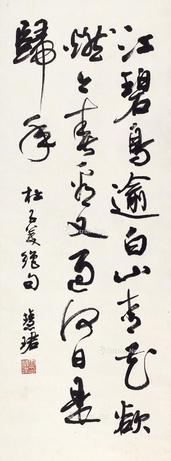 江碧鳥逾白山青花欲
燃今春看又過何日是
歸年
杜子美絕句 慧珺